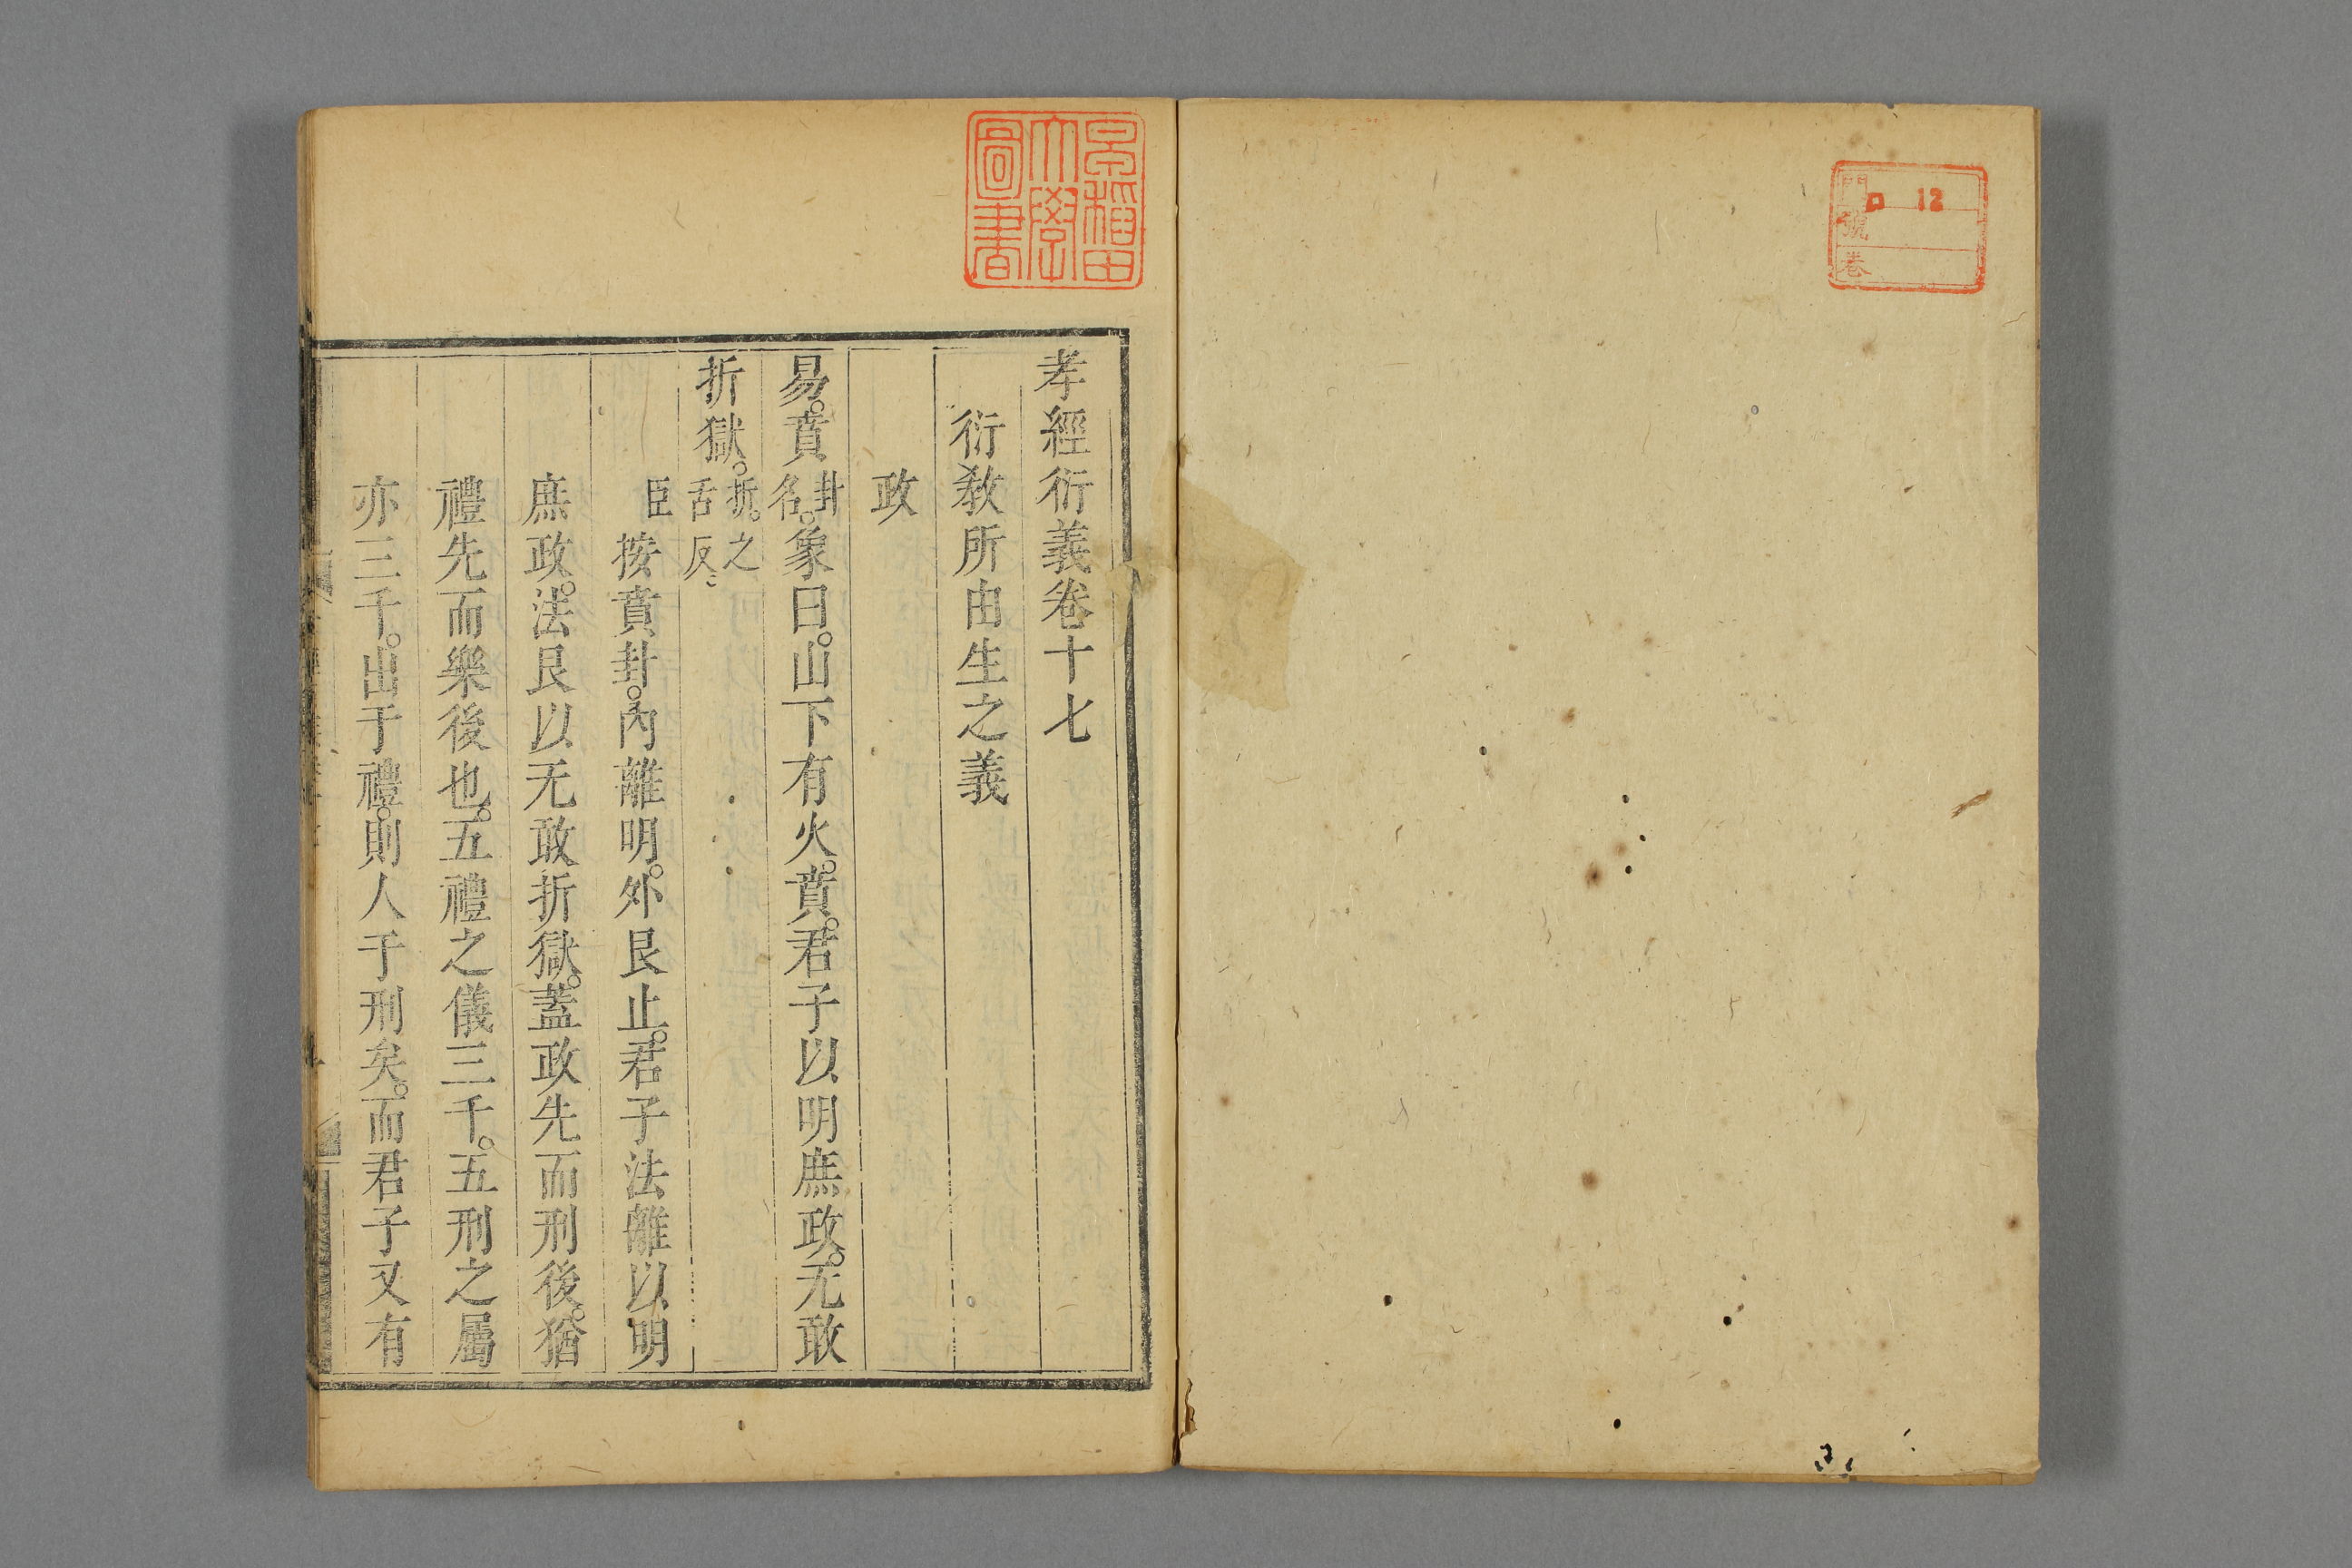 門 ロ 12
號
卷
早稻田
大學
圖書
孝經衍義卷十七
衍敎所由生之義
政
易。賁卦名。象曰。山下有火。賁。君子以明庶政。无敢
折獄。折。之舌反。
臣按賁卦。內離明。外艮止。君子法離以明
庶政。法艮以无敢折獄。蓋政先而刑後。猶
禮先而樂後也。五禮之儀三千。五刑之屬
亦三千。出于禮。則入于刑矣。而君子又有